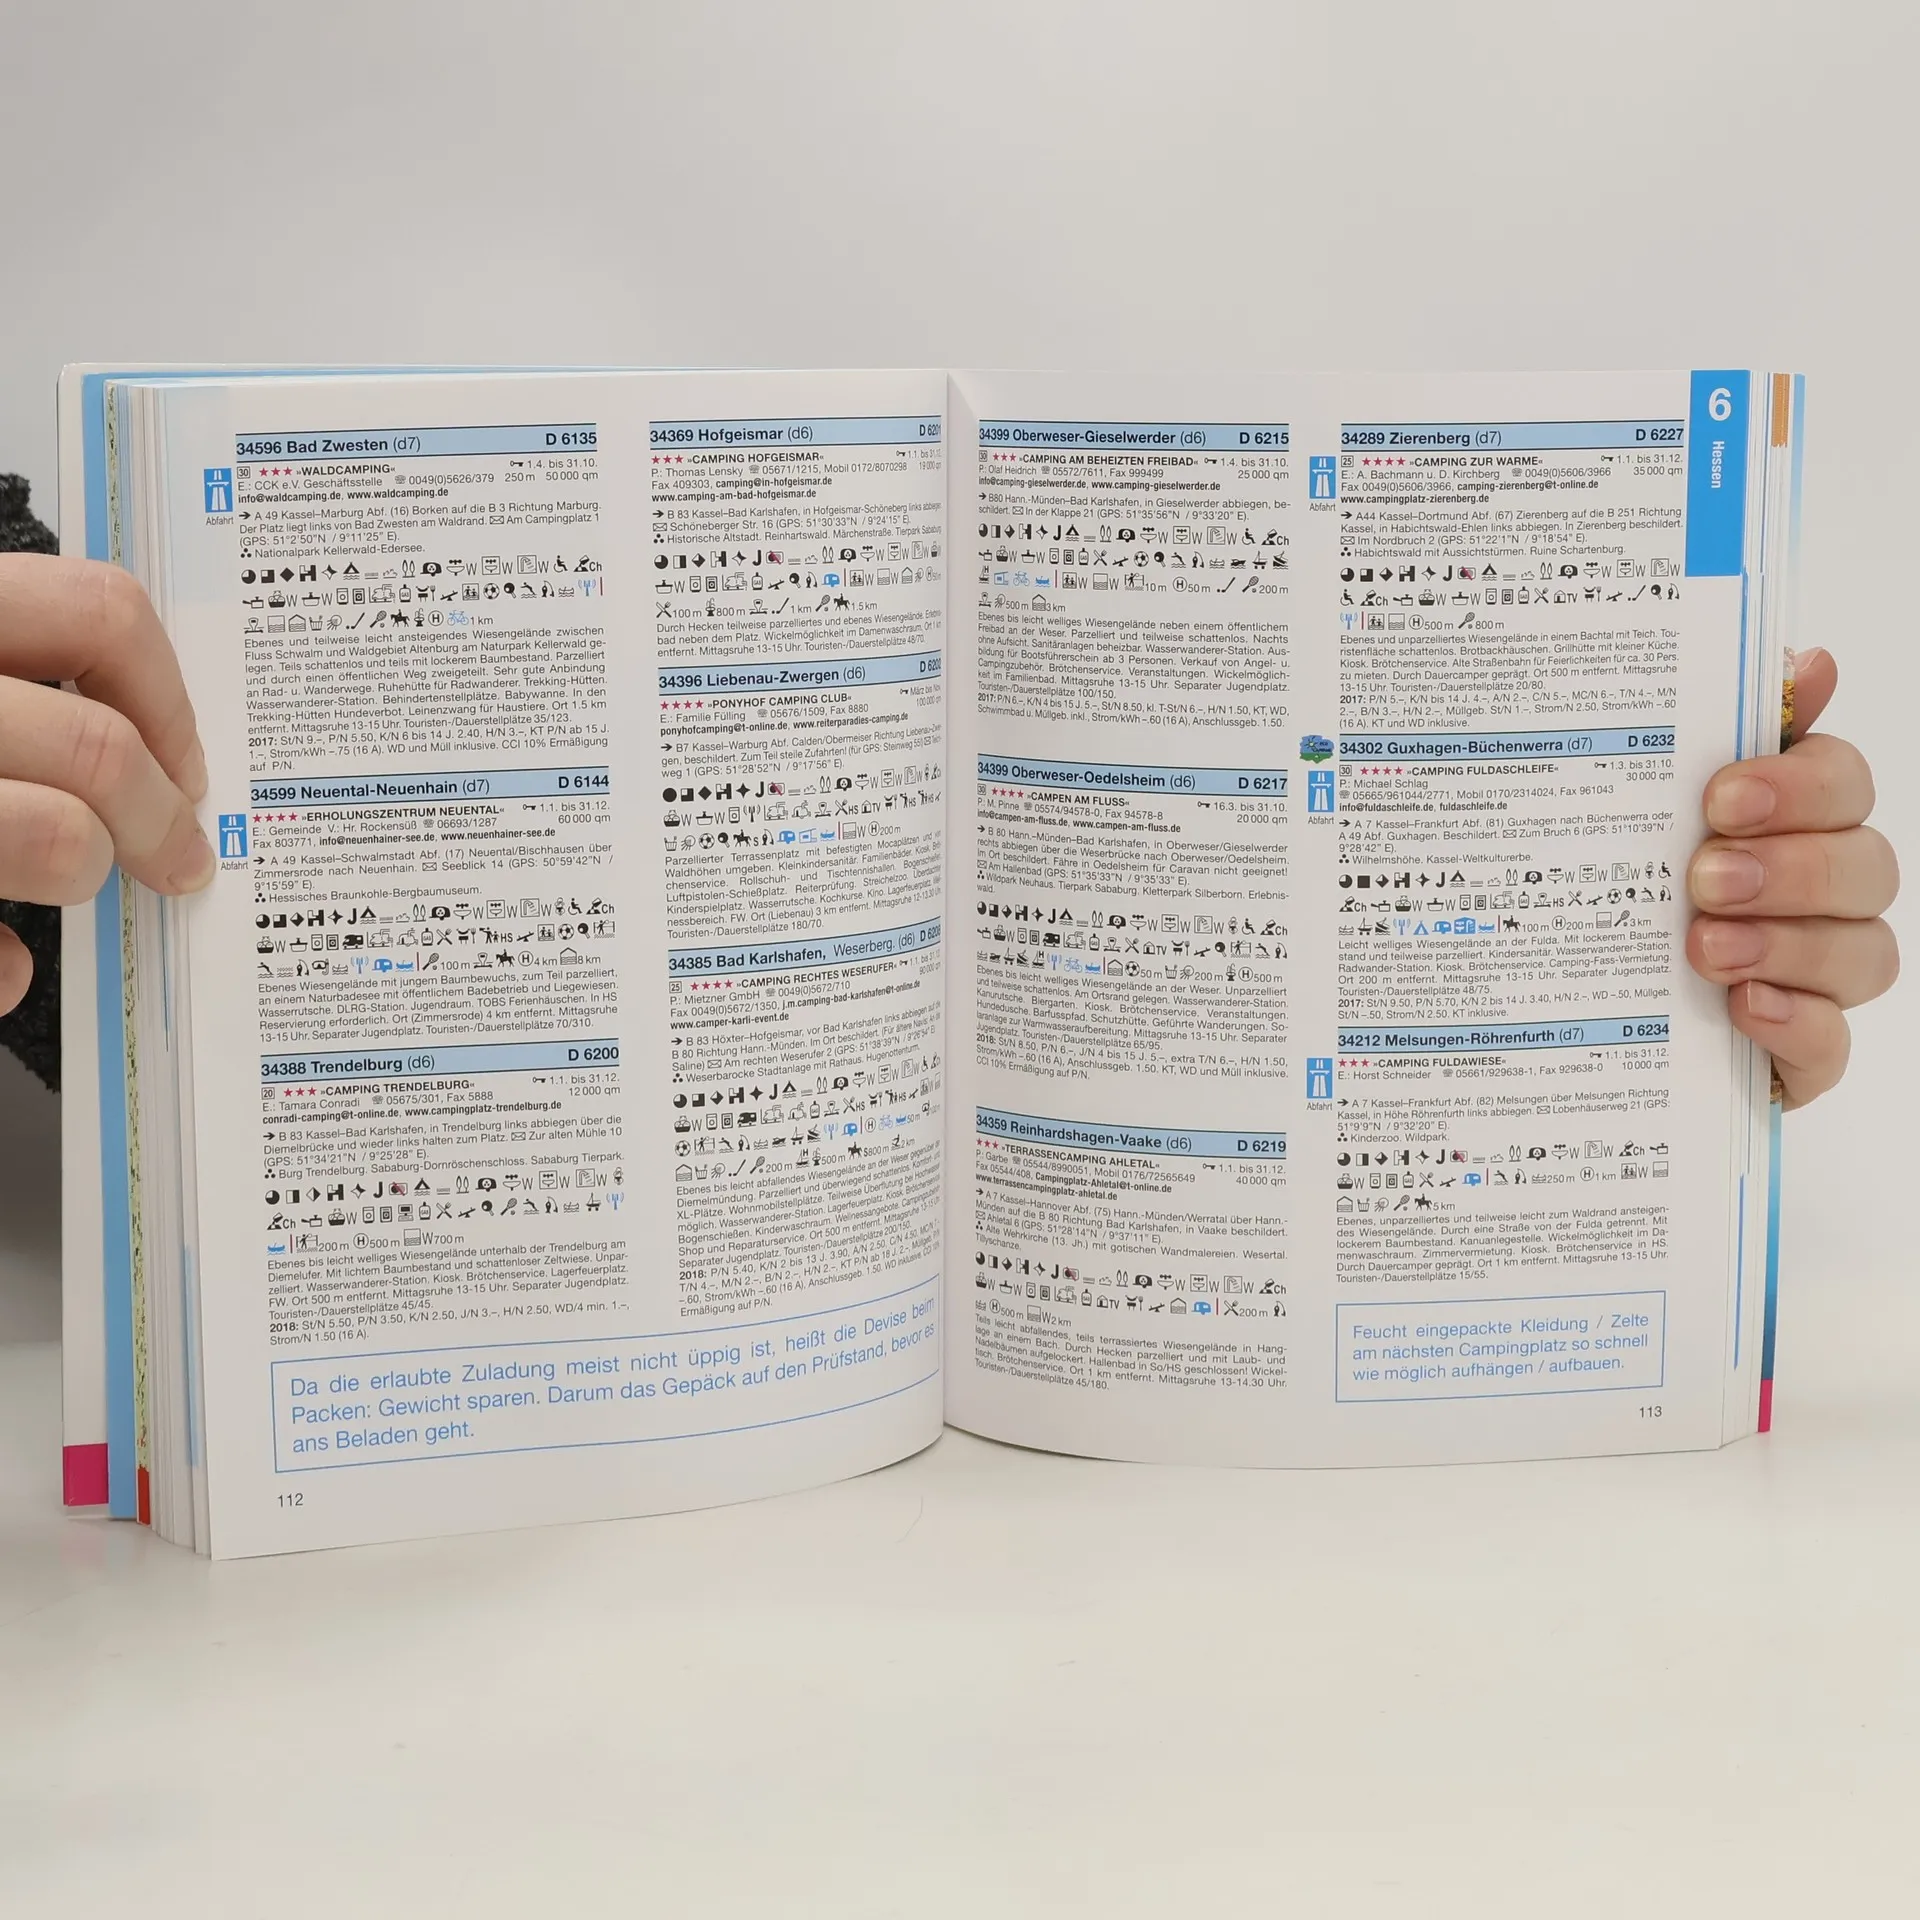 34596 Bad Zwesten (d7) D 6135
30 ★★★ »WALDCAMPING« 1.4. bis 31.10.
E.: CCK e.V. Geschäftsstelle 0049(0)5626/379 250 m 50 000 qm
info@waldcamping.de, www.waldcamping.de
Abfahrt
➔ A 49 Kassel–Marburg Abf. (16) Borken auf die B 3 Richtung Marburg.
Der Platz liegt links von Bad Zwesten am Waldrand. Am Campingplatz 1
(GPS: 51°2'50"N / 9°11'25" E).
Nationalpark Kellerwald-Edersee.
Ch
W W W
1 km
Ebenes und teilweise leicht ansteigendes Wiesengelände zwischen
Fluss Schwalm und Waldgebiet Altenburg am Naturpark Kellerwald ge-
legen. Teils schattenlos und teils mit lockerem Baumbestand. Parzelliert
und durch einen öffentlichen Weg zweigeteilt. Sehr gute Anbindung
an Rad- u. Wanderwege. Ruhehütte für Radwanderer. Trekking-Hütten.
Wasserwanderer-Station. Behindertenstellplätze. Babywanne. In den
Trekking-Hütten Hundeverbot. Leinenzwang für Haustiere. Ort 1.5 km
entfernt. Mittagsruhe 13-15 Uhr. Touristen-/Dauerstellplätze 35/123.
2017: St/N 9.–, P/N 5.50, K/N 6 bis 14 J. 2.40, H/N 3.–, KT P/N ab 15 J.
1.–, Strom/kWh –.75 (16 A). WD und Müll inklusive. CCI 10% Ermäßigung
auf P/N.
34599 Neuental-Neuenhain (d7) D 6144
★★★★ »ERHOLUNGSZENTRUM NEUENTAL« 1.1. bis 31.12.
E.: Gemeinde V.: Hr. Rockensüß 06693/1287 60 000 qm
Fax 803771, info@neuenhainer-see.de, www.neuenhainer-see.de
Abfahrt
➔ A 49 Kassel–Schwalmstadt Abf. (17) Neuental/Bischhausen über
Zimmersrode nach Neuenhain. Seeblick 14 (GPS: 50°59'42"N /
9°15'59" E).
Hessisches Braunkohle-Bergbaumuseum.
100 m 4 km 8 km
Ebenes Wiesengelände mit jungem Baumbewuchs, zum Teil parzelliert,
an einem Naturbadesee mit öffentlichem Badebetrieb und Liegewiesen.
Wasserrutsche. DLRG-Station. Jugendraum. TOBS Ferienhäuschen. In HS
Reservierung erforderlich. Ort (Zimmersrode) 4 km entfernt. Mittagsruhe
13-15 Uhr. Separater Jugendplatz. Touristen-/Dauerstellplätze 70/310.
34388 Trendelburg (d6) D 6200
20 ★★★ »CAMPING TRENDELBURG« 1.1. bis 31.12.
E.: Tamara Conradi 05675/301, Fax 5888 12 000 qm
conradi-camping@t-online.de, www.campingplatz-trendelburg.de
➔ B 83 Kassel–Bad Karlshafen, in Trendelburg links abbiegen über die
Diemelbrücke und wieder links halten zum Platz. Zur alten Mühle 10
(GPS: 51°34'21"N / 9°25'28" E).
Burg Trendelburg. Sababurg-Dornröschenschloss. Sababurg Tierpark.
200 m 500 m W 700 m
Ebenes bis leicht welliges Wiesengelände unterhalb der Trendelburg am
Diemelufer. Mit lichtem Baumbestand und schattenloser Zeltwiese. Unpar-
zelliert. Wasserwanderer-Station. Kiosk. Brötchenservice. Lagerfeuerplatz.
FW. Ort 500 m entfernt. Mittagsruhe 13-15 Uhr. Separater Jugendplatz.
Touristen-/Dauerstellplätze 45/45.
2018: St/N 5.50, P/N 3.50, K/N 2.50, J/N 3.–, H/N 2.50, WD/4 min. 1.–,
Strom/N 1.50 (16 A).
34369 Hofgeismar (d6) D 6201
★★★ »CAMPING HOFGEISMAR« 1.1. bis 31.
P.: Thomas Lensky 05671/1215, Mobil 0172/8070298 19 000 qm
Fax 409303, camping@in-hofgeismar.de
www.camping-am-bad-hofgeismar.de
➔ B 83 Kassel–Bad Karlshafen, in Hofgeismar-Schöneberg links abbiegen
Schöneberger Str. 16 (GPS: 51°30'33"N / 9°24'15" E).
Historische Altstadt. Reinhartswald. Märchenstraße. Tierpark Sababurg
100 m 800 m 1 km 1.5 km
Durch Hecken teilweise parzelliertes und ebenes Wiesengelände.
bad neben dem Platz. Wickelmöglichkeit im Damenwaschraum. Ort 1 km
entfernt. Mittagsruhe 13-15 Uhr. Touristen-/Dauerstellplätze 48/70.
34396 Liebenau-Zwergen (d6) D 6202
★★★★ »PONYHOF CAMPING CLUB« März bis Nov.
E.: Familie Fülling 05676/1509, Fax 8880 100 000 qm
ponyhofcamping@t-online.de, www.reiterparadies-camping.de
➔ B7 Kassel–Warburg Abf. Calden/Obermeiser Richtung Liebenau-Zwer-
gen, beschildert. Zum Teil steile Zufahrten! (für GPS: Steinweg 55) Teich-
weg 1 (GPS: 51°28'52"N / 9°17'56" E).
200 m
Parzellierter Terrassenplatz mit befestigten Mocaplätzen und von
Waldhöhen umgeben. Kleinkindersanitär. Familienbäder. Kiosk. Bröt-
chenservice. Rollschuh- und Tischtennishallen. Bogenschießen.
Luftpistolen-Schießplatz. Reiterprüfung. Streichelzoo. Überdachter
Kinderspielplatz. Wasserrutsche. Kochkurse. Kino. Lagerfeuerplatz.
nessbereich. FW. Ort (Liebenau) 3 km entfernt. Mittagsruhe 12-13.30 Uhr.
Touristen-/Dauerstellplätze 180/70.
34385 Bad Karlshafen, Weserberg. (d6) D 6206
25 ★★★★ »CAMPING RECHTES WESERUFER« 1.1. bis 31.
P.: Mietzner GmbH 0049(0)5672/710 90 000 qm
Fax 0049(0)5672/1350, j.m.camping-bad-karlshafen@t-online.de
www.camper-karli-event.de
➔ B 83 Höxter–Hofgeismar, vor Bad Karlshafen links abbiegen auf die
B 80 Richtung Hann.-Münden. Im Ort beschildert. (Für ältere Navis: An der
Saline) Am rechten Weserufer 2 (GPS: 51°38'39"N / 9°26'54" E).
Weserbarocke Stadtanlage mit Rathaus. Hugenottenturm.
200 m 500 m 5800 m 2 km
Ebenes bis leicht abfallendes Wiesengelände an der Weser gegenüber der
Diemelmündung. Parzelliert und überwiegend schattenlos. Komfort- und
XL-Plätze. Wohnmobilstellplätze. Teilweise Überflutung bei Hochwasser
möglich. Wasserwanderer-Station. Lagerfeuerplatz. Kiosk. Brötchenservice.
Bogenschießen. Kinderwaschraum. Wellnessangebote. Campingzubehör-
Shop und Reparaturservice. Ort 500 m entfernt. Mittagsruhe 13-15 Uhr.
Separater Jugendplatz. Touristen-/Dauerstellplätze 200/150.
2018: P/N 5.40, K/N 2 bis 13 J. 3.90, A/N 2.50, C/N 4.50, MC/N 7.–,
T/N 4.–, M/N 2.–, B/N 2.–, H/N 2.–, KT P/N ab 18 J. 2.–, Müllgeb.
–.60, Strom/kWh –.60 (16 A), Anschlussgeb. 1.50. WD inklusive. CCI 10%
Ermäßigung auf P/N.
Da die erlaubte Zuladung meist nicht üppig ist, heißt die Devise beim
Packen: Gewicht sparen. Darum das Gepäck auf den Prüfstand, bevor es
ans Beladen geht.
112
34399 Oberweser-Gieselwerder (d6) D 6215
30 ★★★ »CAMPING AM BEHEIZTEN FREIBAD« 1.4. bis 31.10.
P.: Olaf Heidrich 05572/7611, Fax 999499 25 000 qm
info@camping-gieselwerder.de, www.camping-gieselwerder.de
➔ B80 Hann.-Münden–Bad Karlshafen, in Gieselwerder abbiegen, be-
schildert. In der Klappe 21 (GPS: 51°35'56"N / 9°33'20" E).
10 m 50 m 200 m
500 m 3 km
Ebenes bis leicht welliges Wiesengelände neben einem öffentlichem
Freibad an der Weser. Parzelliert und teilweise schattenlos. Nachts
ohne Aufsicht. Sanitäranlagen beheizbar. Wasserwanderer-Station. Aus-
bildung für Bootsführerschein ab 3 Personen. Verkauf von Angel- u.
Campingzubehör. Brötchenservice. Veranstaltungen. Wickelmöglich-
keit im Familienbad. Mittagsruhe 13-15 Uhr. Separater Jugendplatz.
Touristen-/Dauerstellplätze 100/150.
2017: P/N 6.–, K/N 4 bis 15 J. 5.–, St/N 8.50, kl. T-St/N 6.–, H/N 1.50, KT, WD,
Schwimmbad u. Müllgeb. inkl., Strom/kWh –.60 (16 A), Anschlussgeb. 1.50.
34399 Oberweser-Oedelsheim (d6) D 6217
30 ★★★★ »CAMPEN AM FLUSS« 16.3. bis 31.10.
P.: M. Pinne 05574/94578-0, Fax 94578-8 20 000 qm
info@campen-am-fluss.de, www.campen-am-fluss.de
➔ B 80 Hann.-Münden–Bad Karlshafen, in Oberweser/Gieselwerder
rechts abbiegen über die Weserbrücke nach Oberweser/Oedelsheim.
Im Ort beschildert. Fähre in Oedelsheim für Caravan nicht geeignet!
Am Hallenbad (GPS: 51°35'33"N / 9°35'33" E).
Wildpark Neuhaus. Tierpark Sababurg. Kletterpark Silberborn. Erlebnis-
wald.
50 m 200 m 500 m
Ebenes bis leicht welliges Wiesengelände an der Weser. Unparzelliert
und teilweise schattenlos. Am Ortsrand gelegen. Wasserwanderer-Station.
Kanurutsche. Biergarten. Kiosk. Brötchenservice. Veranstaltungen.
Hundedusche. Barfusspfad. Schutzhütte. Geführte Wanderungen. So-
laranlage zur Warmwasseraufbereitung. Mittagsruhe 13-15 Uhr. Separater
Jugendplatz. Touristen-/Dauerstellplätze 65/95.
2018: St/N 8.50, P/N 6.–, J/N 4 bis 15 J. 5.–, extra T/N 6.–, H/N 1.50,
Strom/kWh –.60 (16 A), Anschlussgeb. 1.50. KT, WD und Müll inklusive.
CCI 10% Ermäßigung auf P/N.
34359 Reinhardshagen-Vaake (d6) D 6219
★★★ »TERRASSENCAMPING AHLETAL« 1.1. bis 31.12.
P.: Garbe 05544/8990051, Mobil 0176/72565649 40 000 qm
Fax 05544/408, Campingplatz-Ahletal@t-online.de
www.terrassencampingplatz-ahletal.de
➔ A 7 Kassel–Hannover Abf. (75) Hann.-Münden/Werratal über Hann.-
Münden auf die B 80 Richtung Bad Karlshafen, in Vaake beschildert.
Ahletal 6 (GPS: 51°28'14"N / 9°37'11" E).
Alte Wehrkirche (13. Jh.) mit gotischen Wandmalereien. Wesertal.
Tillyschanze.
200 m
500 m W 2 km
Teils leicht abfallendes, teils terrassiertes Wiesengelände in Hang-
lage an einem Bach. Durch Hecken parzelliert und mit Laub- und
Nadelbäumen aufgelockert. Hallenbad in So/HS geschlossen! Wickel-
tisch. Brötchenservice. Ort 1 km entfernt. Mittagsruhe 13-14.30 Uhr.
Touristen-/Dauerstellplätze 45/180.
34289 Zierenberg (d7) D 6227
25 ★★★★ »CAMPING ZUR WARME« 1.1. bis 31.12.
E.: A. Bachmann u. D. Kirchberg 0049(0)5606/3966 35 000 qm
Fax 0049(0)5606/3966, camping-zierenberg@t-online.de
www.campingplatz-zierenberg.de
Abfahrt
➔ A44 Kassel–Dortmund Abf. (67) Zierenberg auf die B 251 Richtung
Kassel, in Habichtswald-Ehlen links abbiegen. In Zierenberg beschildert.
Im Nordbruch 2 (GPS: 51°22'1"N / 9°18'54" E).
Habichtswald mit Aussichtstürmen. Ruine Schartenburg.
500 m 800 m
Ebenes und unparzelliertes Wiesengelände in einem Bachtal mit Teich. Tou-
ristenfläche schattenlos. Brotbackhäuschen. Grillhütte mit kleiner Küche.
Kiosk. Brötchenservice. Alte Straßenbahn für Feierlichkeiten für ca. 30 Pers.
zu mieten. Durch Dauercamper geprägt. Ort 500 m entfernt. Mittagsruhe
13-15 Uhr. Touristen-/Dauerstellplätze 20/80.
2017: P/N 5.–, K/N bis 14 J. 4.–, A/N 2.–, C/N 5.–, MC/N 6.–, T/N 4.–, M/N
2.–, B/N 3.–, H/N 2.–, Müllgeb. St/N 1.–, Strom/N 2.50, Strom/kWh –.60
(16 A). KT und WD inklusive.
34302 Guxhagen-Büchenwerra (d7) D 6232
30 ★★★★ »CAMPING FULDASCHLEIFE« 1.3. bis 31.10.
P.: Michael Schlag 30 000 qm
05665/961044/2771, Mobil 0170/2314024, Fax 961043
info@fuldaschleife.de, fuldaschleife.de
Abfahrt
➔ A 7 Kassel–Frankfurt Abf. (81) Guxhagen nach Büchenwerra oder
A 49 Abf. Guxhagen. Beschildert. Zum Bruch 6 (GPS: 51°10'39"N /
9°28'42" E).
Wilhelmshöhe. Kassel-Weltkulturerbe.
100 m 200 m 3 km
Leicht welliges Wiesengelände an der Fulda. Mit lockerem Baumbe-
stand und teilweise parzelliert. Kindersanitär. Wasserwanderer-Station.
Radwander-Station. Kiosk. Brötchenservice. Camping-Fass-Vermietung.
Ort 200 m entfernt. Mittagsruhe 13-15 Uhr. Separater Jugendplatz.
Touristen-/Dauerstellplätze 48/75.
2017: St/N 9.50, P/N 5.70, K/N 2 bis 14 J. 3.40, H/N 2.–, WD –.50, Müllgeb.
St/N –.50, Strom/N 2.50. KT inklusive.
34212 Melsungen-Röhrenfurth (d7) D 6234
★★★ »CAMPING FULDAWIESE« 1.1. bis 31.12.
E.: Horst Schneider 05661/929638-1, Fax 929638-0 10 000 qm
Abfahrt
➔ A 7 Kassel–Frankfurt Abf. (82) Melsungen über Melsungen Richtung
Kassel, in Höhe Röhrenfurth links abbiegen. Lobenhäuserweg 21 (GPS:
51°9'9"N / 9°32'20" E).
Kinderzoo. Wildpark.
250 m 1 km
5 km
Ebenes, unparzelliertes und teilweise leicht zum Waldrand ansteigen-
des Wiesengelände. Durch eine Straße von der Fulda getrennt. Mit
lockerem Baumbestand. Kanuanlegestelle. Wickelmöglichkeit im Da-
menwaschraum. Zimmervermietung. Kiosk. Brötchenservice in HS.
Durch Dauercamper geprägt. Ort 1 km entfernt. Mittagsruhe 13-15 Uhr.
Touristen-/Dauerstellplätze 15/55.
Feucht eingepackte Kleidung / Zelte
am nächsten Campingplatz so schnell
wie möglich aufhängen / aufbauen.
113
6
Hessen